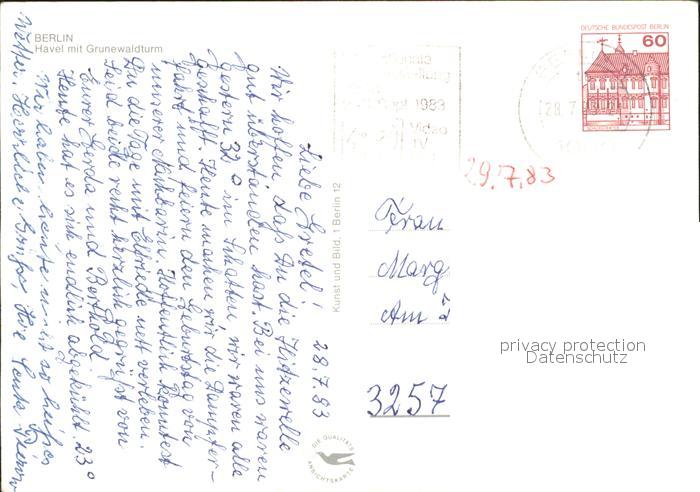 BERLIN
Havel mit Grunewaldturm
DEUTSCHE BUNDESPOST BERLIN
60
1983
Video
TV
28.7
29.7.83
28.7.83
Liebe Gretel!
Wir hoffen, daß Du die Hitzewelle
gut überstanden hast. Bei uns waren
gestern 32° im Schatten, wir waren alle
geschafft. Heute machen wir die Dampfer-
fahrt und feiern den Geburtstag von
unserer Nachbarin. Hoffentlich konntest
Du die Tage mit Elfriede nett verleben.
Seid beide recht herzlich gegrüßt von
Eurer Gerda und Berthold.
Heute hat es sich endlich abgekühlt. 23°
Wir haben heute nicht so heißes
Wetter. Herzliche Grüße, Ihre
Kunst und Bild, 1 Berlin 12
DIE QUALITÄTS
ANSICHTSKARTE
Frau
Marg
Am
3257
privacy protection
Datenschutz